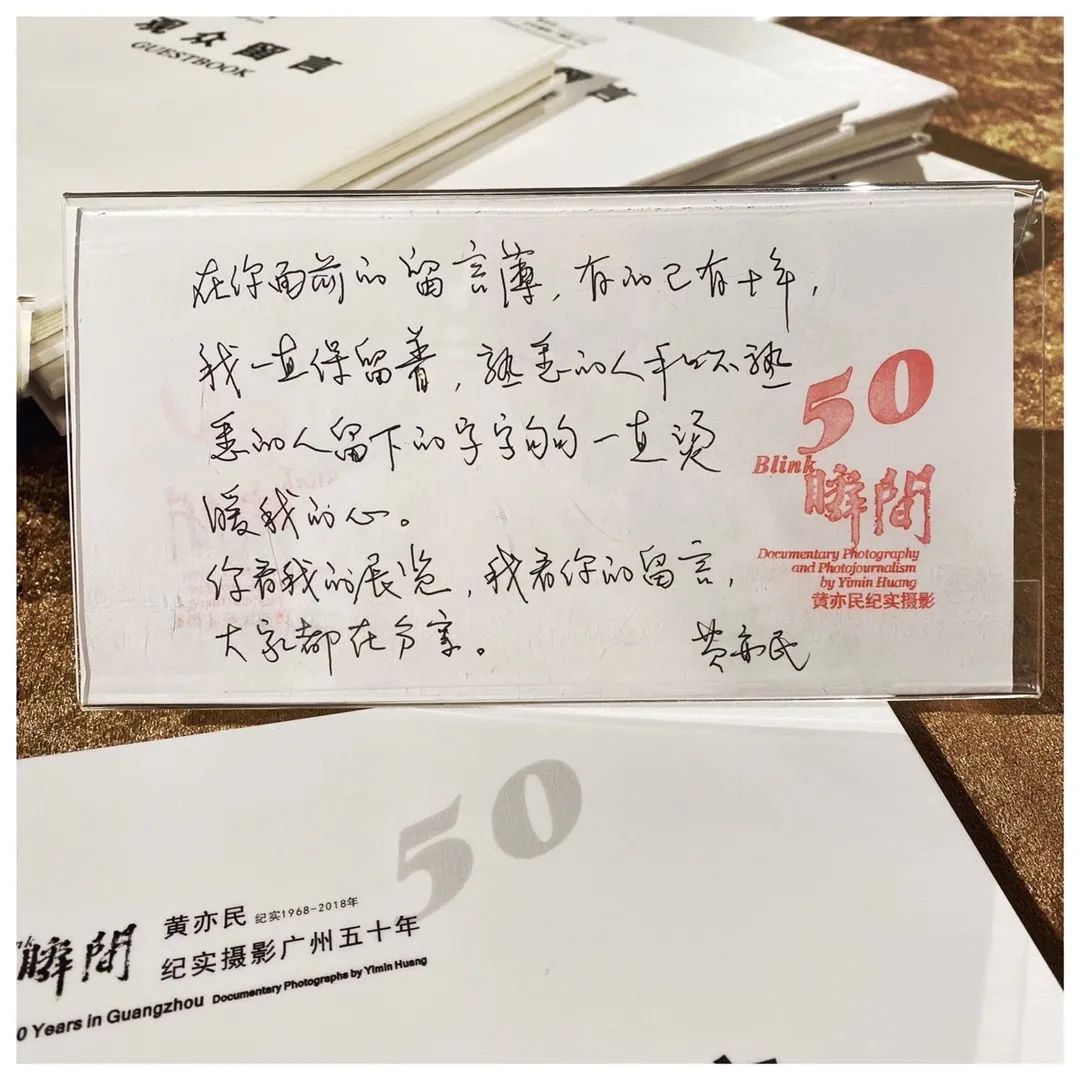 观众留言
GUESTBOOK
言
在你面前的留言薄，有的已有十年，
我一直保留着，熟悉的人和不熟
悉的人留下的字字句句一直烫
暖我的心。
你看我的展览，我看你的留言，
大家都在分享。
黄亦民
50
Blink
瞬间
Documentary Photography
and Photojournalism
by Yimin Huang
黄亦民纪实摄影
50
瞬间
黄亦民 纪实1968-2018年
纪实摄影广州五十年
0 Years in Guangzhou Documentary Photographs by Yimin Huang